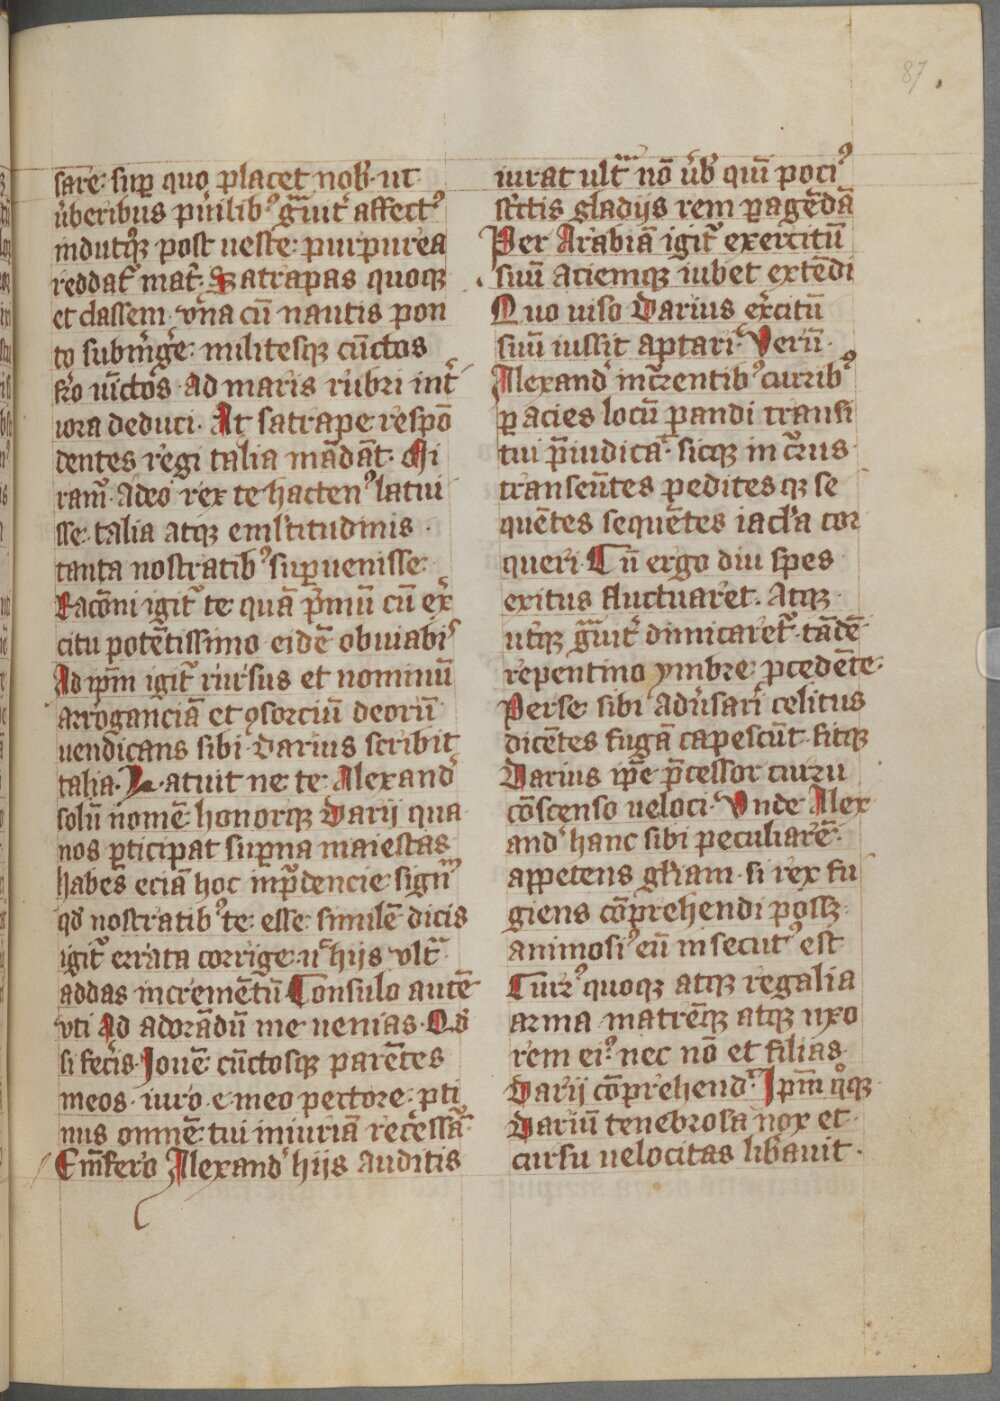 87
sare sup̱ quo placet nob̕ ut
ub̕eribus pu̕ilib᷒ ḡuit᷑ affect᷒
indutq᷒ post ueste purpurea
reddat᷑ mat᷑ Satrapas quoq᷒
et classem vna cū nautis pon
to subm̕ge militesq᷒ cūctos
fr̄o uīctos ad maris rubri int᷑
iora deduci At satrape respō
dentes regi talia mādāt Mi
ram̄ adeo rex te hacten᷒ latui
sse talia atq᷒
tanta nostratib᷒ sup̱uenisse
Racōni igit᷑ te quā p̄miū cū ex̕
citu potētissimo eidē obuiab̕
Ad ip̄m igit᷑ rursus et nominū
arroganciā et ꝯsorciū deorū
uendicans sibi Darius scribit
talia Latuit ne te Alexand̕
solū nomē honorq᷒ Darij qua
nos p̱ticipat sup̱na maiestas
habes eciā hoc inp̄dencie signū
qd̕ nostratib᷒ te esse similē dicis
igit᷑ errata corrige n̕ hijs vlt᷑
addas incremētū Consulo autē
vti Ad adorādū me uenias Qd̕
si fec̕is Jouē cūctosq᷒ parētes
meos iuro e meo pectore p̱ti
nus omnē tui iniuriā recessā
Em̄fero Alexand̕ hijs auditis
iurat ult᷑ nō ūb̕ quiū poci᷒
strictis gladijs rem p̱agēdā
Per Arabiā igit᷑ exercitū
suū aciemq᷒ iubet extēdi
Quo uiso Darius ex̕citū
suū iussit aptari Verū
Alexand̕ inc̄rentib᷒ currib᷒
p̱ acies locū pandi transi
tui p̄iudicat sicq᷒ in c̄rus
transeūtes pedites q᷒ se
quētes sequētes iacl̕a tor
queri Cū ergo diu spes
exitus fluctuaret Atq᷒
utq᷒ ḡuit᷑ dimicaret᷑ tādē
repentino ymbre p̱cedēte
Perse sibi adu̕sari celitus
dicētes fugā capescūt fitq᷒
Darius ip̄e p̄cessor curru
cōscenso ueloci Vnde Alex
and̕ hanc sibi peculiarē
appetens gl̄iam si rex fu
giens cōprehendi poss᷒
animosi᷒ eū insecut᷒ est
Curr᷒ quoq᷒ atq᷒ regalia
arma matrēq᷒ atq᷒ uxo
rem ei᷒ nec nō et filias
Darij cōprehend̕ Jp̄m q᷒q᷒
Dariū tenebrosa nox et
cursu uelocitas lib̕auit